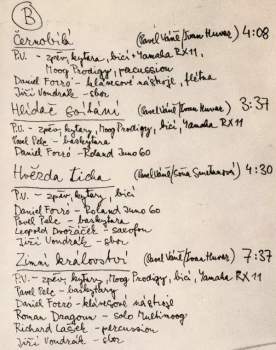 B
Černobílá (Pavel Váně/Ivan Huvar) 4:08
P.V. - zpěv, kytara, bicí + Yamaha RX11,
Moog Prodigy, percussion
Daniel Forró - klávesové nástroje, flétna
Jiří Vondrák - sbor
Hlídač soutání (Pavel Váně/Ivan Huvar) 3:37
P.V. - zpěv, kytary, Moog Prodigy, bicí, Yamaha RX11
Pavel Pelc - baskytara
Daniel Forró - Roland Juno 60
Hvězda tichá (Pavel Váně/Soňa Smetanová) 4:30
P.V. - zpěv, kytary, bicí
Daniel Forró - Roland Juno 60
Pavel Pelc - baskytara
Leopold Dvořáček - saxofon
Jiří Vondrák - sbor
Zimní království (Pavel Váně/Ivan Huvar) 7:37
P.V. - zpěv, kytary, Moog Prodigy, bicí, Yamaha RX11
Pavel Pelc - baskytary
Daniel Forró - klávesové nástroje
Roman Dragoun - solo Multimoog
Richard Lašek - percussion
Jiří Vondrák - sbor